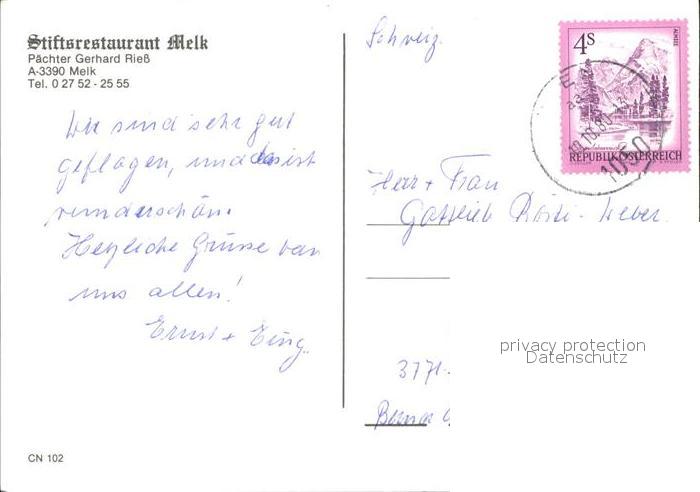 Stiftsrestaurant Melk
Pächter Gerhard Rieß
A-3390 Melk
Tel. 0 27 52 - 25 55
Wir sind sehr gut
geflogen, und das ist
wunderschön.
Herzliche Grüsse von
uns allen!
Ernst +
CN 102
Schweiz.
4S
ALMSEE
REPUBLIK ÖSTERREICH
1050
Herr + Frau
Gottlieb Rösti-Weber.
privacy protection
Datenschutz
3771